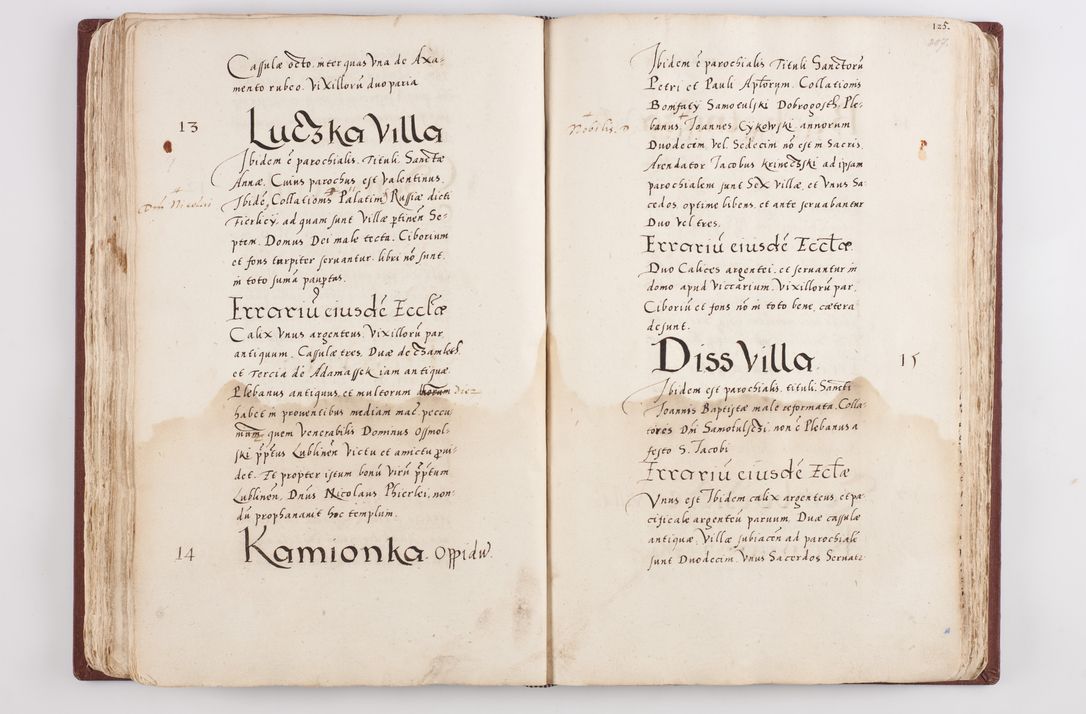 Cassulæ octo. inter quas Vna de Axa-
mento rubeo. Vixillorũ duo paria
13 Luczka Villa
Ibidem ẽ parochialis. Tituli Sanctæ
Annæ. Cuius parochus est Valentinus.
Dñi Nicolai
Ibidẽ, Collationis Palatini Russiæ dicti
Fierley, ad quam sunt Villæ ptinẽn Se-
ptem. Domus Dei male tecta. Ciborium
et fons turpiter seruantur. libri nõ sunt.
in toto suma paupťas.
Errariũ eiusdẽ Eccłæ
Calix Vnus argenteus. Vixillorũ par
antiquum. Cassulæ tres. Duæ de czamleth
et Tercia de Adamassek iam antiquæ.
Plebanus antiquus, et multorum dierum
habet in prouentibus mediam mac. peccu
niam quem Venerabilis Dominus Ossmol-
ski pptus Lublineñ Victu et amictu pui-
det. Et propter istum bonũ Virũ pptum
Lublineñ. Dñus Nicolaus Phierlei, non-
dũ prophanauit hoc templum.
14 Kamionka. Oppidũ.
125.
Ibidem ẽ parochialis Tituli Sanctorũ
Petri et Pauli Aptorum. Collationis
Bonifatÿ Samotulski Dobrogosth Ple-
Nobilis. D
banus Ioannes Cÿkowski annorum
Duodecim Vel Sedecim nõ est in Sacris.
Arendator Iacobus krineczski ad ipsam
parochialem sunt Sex Villæ, et Vnus Sa-
cedos optime libens, et ante seruabantur
Duo Vel tres.
Errariũ eiusdẽ Eccłæ.
Duo Calices argentei, et seruantur in
domo apud Viccarium, Vixillorũ par,
Ciboriũ et fons nõ in toto bene, cætera
desunt.
Diss Villa. 15
Ibidem est parochialis, tituli Sancti
Ioannis Baptistæ male reformata. Colla-
tores Dñi Samotulsczi. non ẽ Plebanus a
festo S. Iacobi
Errariũ eiusdẽ Ecłæ
Vnus est Ibidem calix argenteus, et pa-
cificale argenteũ paruum, Duæ cassulæ
antiquæ, Villæ subiaceñ ad parochialẽ
sunt Duodecim. Vnus Sacerdos Seruatr